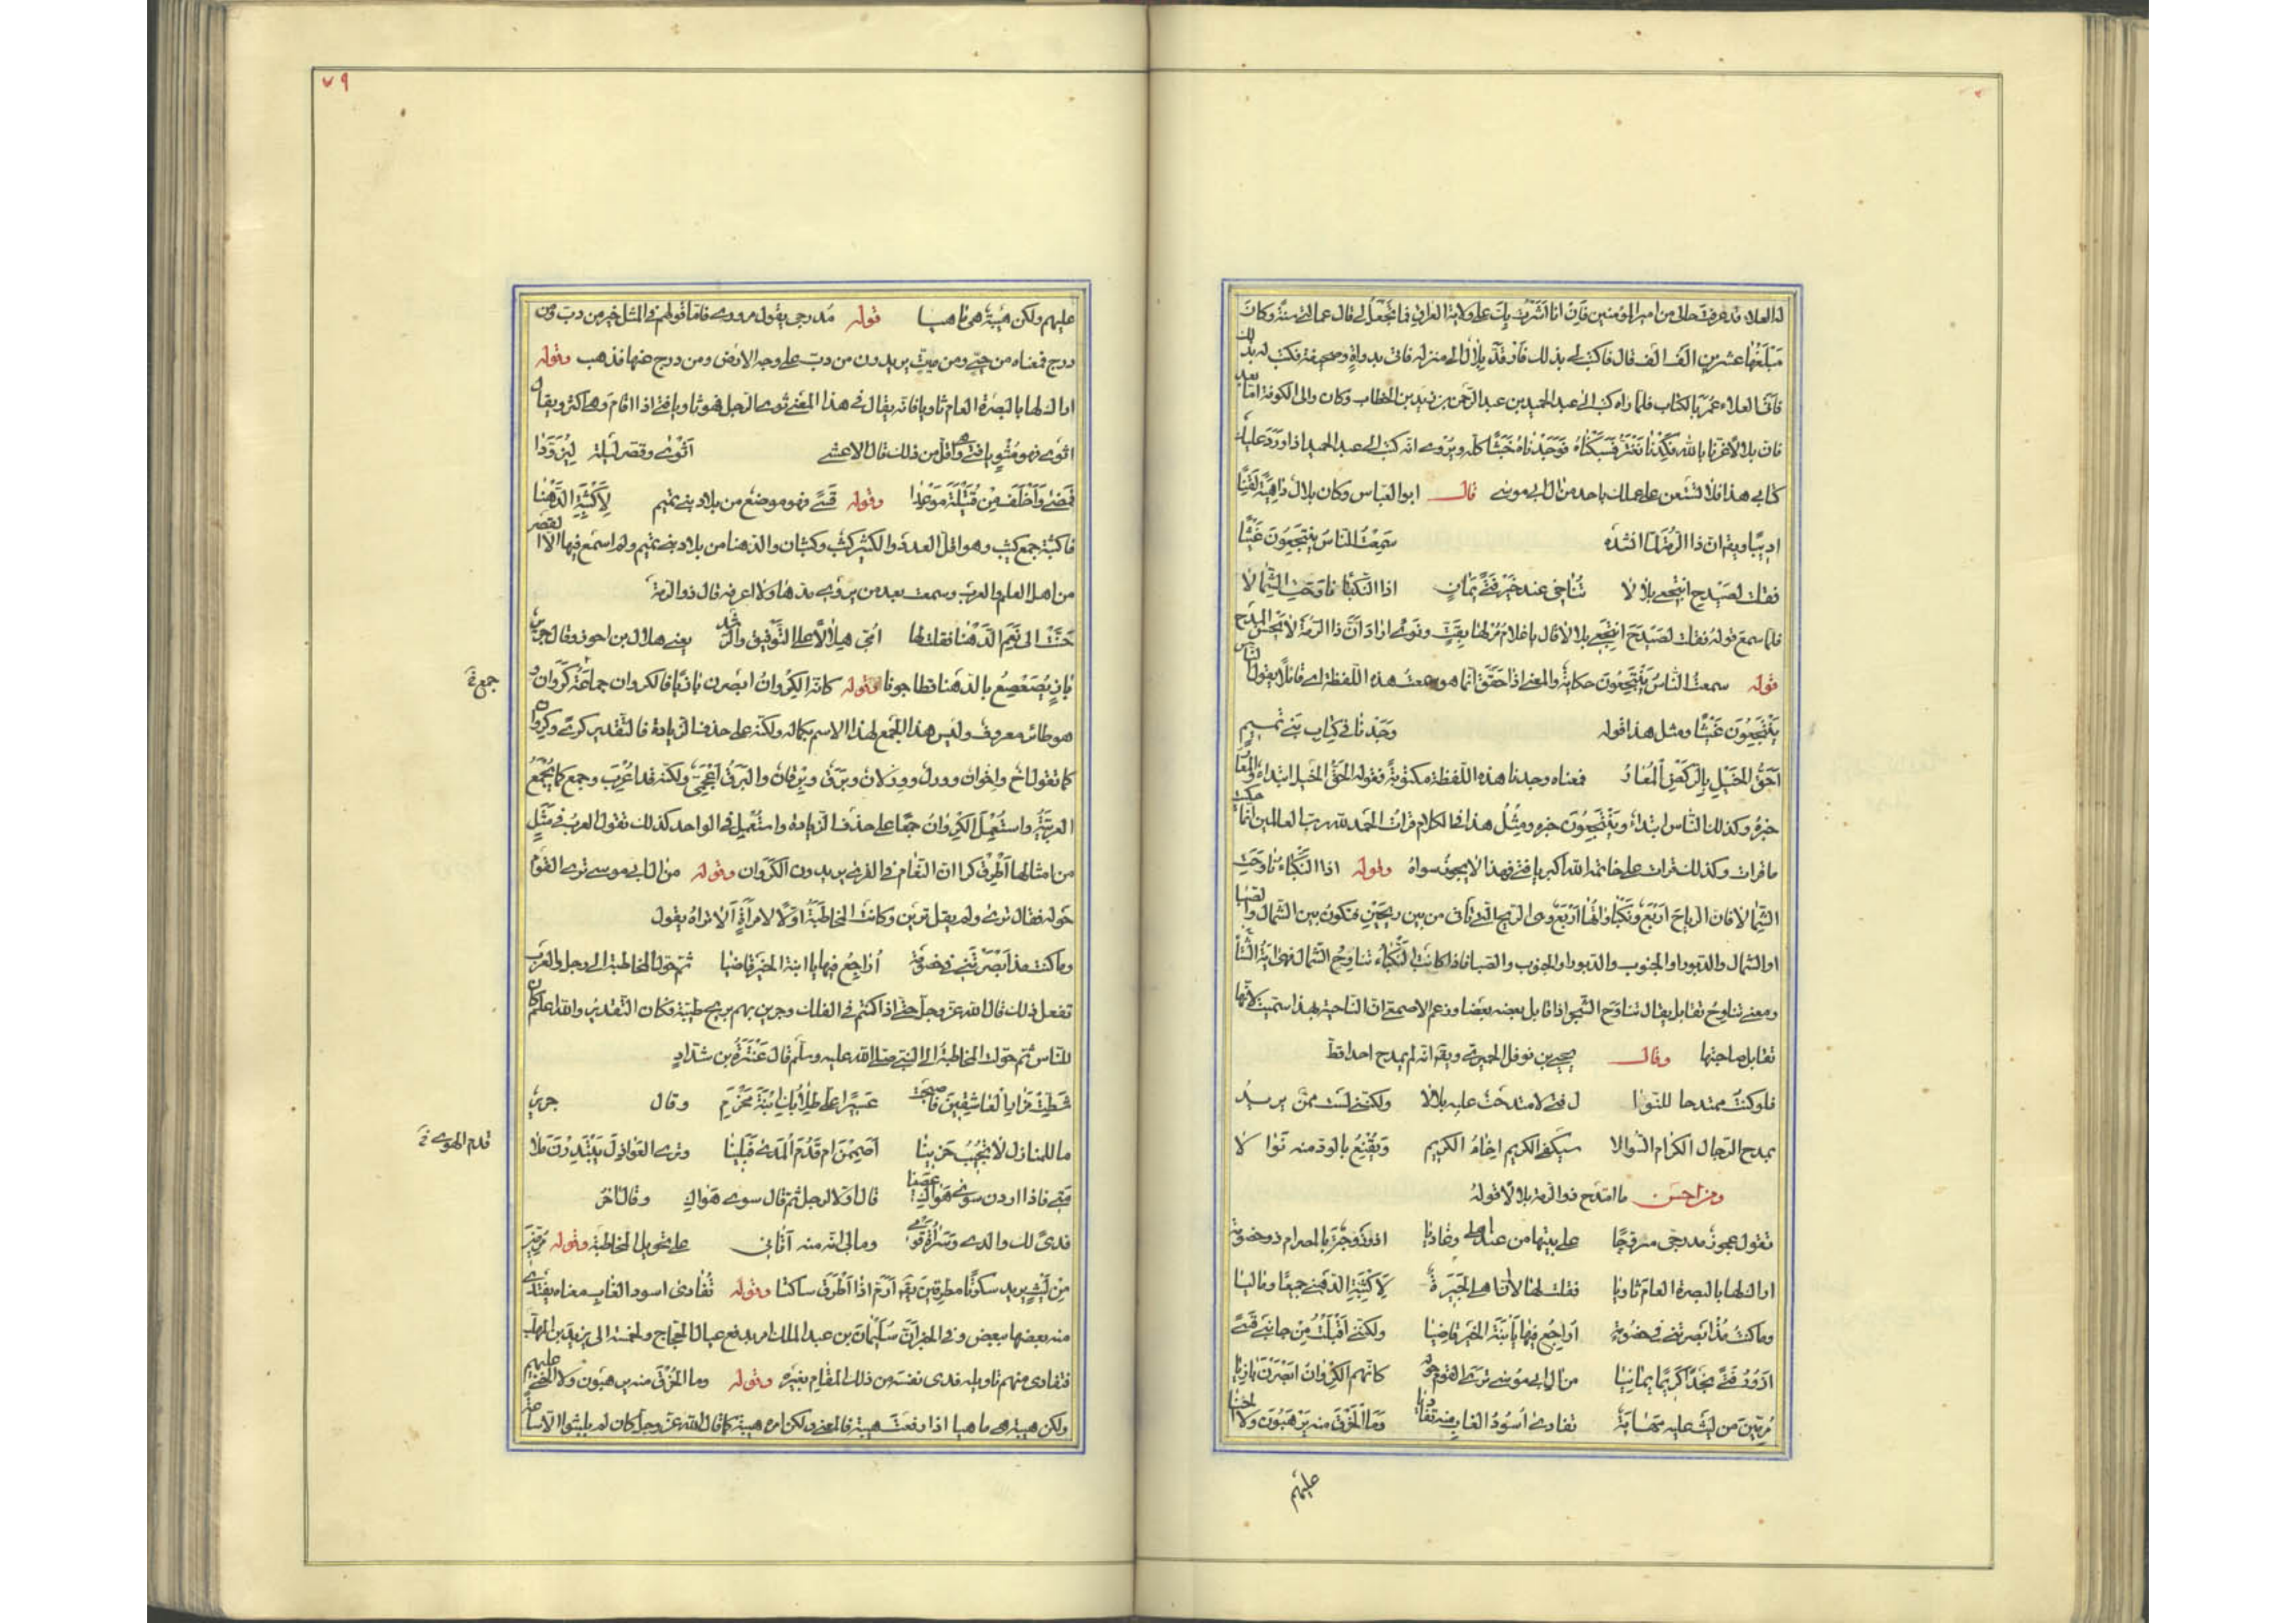 له العلاء قد عرفت حالي من امير المؤمنين فان انا اشرت بك على ولاية العراق فما تجعل لي قال عمالتي سنة وكان
مبلغها عشرين الف الف قال فاكتب لي بذلك فارقد بلال الى منزله فاتى بدواة وصحيفة فكتب له بذلك
فاتى العلاء عمر بالكتاب فلما راه كتب الى عبد الحميد بن عبد الرحمن بن زيد بن الخطاب وكان والى الكوفة اما بعد
فان بلالا غرنا بالله فكدنا نغتر فسبكناه فوجدناه خبثا كله ويروى انه كتب الى عبد الحميد اذا ورد عليك
كتابي هذا فلا تستعن على عملك باحد من ال ابي موسى قال ابو العباس وكان بلال داهية لقنا
اديبا ويقال ان ذا الرمة لما انشده سمعت الناس ينتجعون غيثا
فقلت لصيدح انتجعي بلالا تناخى عند خير فتى يمان اذا النكباء ناوحت الشمالا
فلما سمع قوله فقلت لصيدح انتجعي بلالا قال يا غلام مر لها بقت ونوى اراد ان ذا الرمة لا يحسن المدح
قوله سمعت الناس ينتجعون حكاية والمعنى اذا حقق انما هو سمعت هذه اللفظة اى قائلا يقول الناس
ينتجعون غيثا ومثل هذا قوله وجدنا في كتاب بني تميم
احق الخيل بالركض المعار فمعناه وجدنا هذه اللفظة مكتوبة فقوله احق الخيل ابتداء والمعار
خبره وكذلك الناس ابتداء وينتجعون خبره ومثل هذا في الكلام قرات الحمد لله رب العالمين انما حكيت
ما قرات وكذلك قرات على خاتمه الله اكبر يا فتى فهذا لا يجوز سواه وقوله اذا النكباء ناوحت
الشمالا فان الرياح اربع ونكباواتها اربع وهي الريح التي تاتى من بين ريحين فتكون بين الشمال والصبا
او الشمال والدبور او الجنوب والدبور او الجنوب والصبا فاذا كانت النكباء تناوح الشمال فهي اية الشتاء
ومعنى تناوح تقابل يقال تناوح الشجر اذا قابل بعضه بعضا وزعم الاصمعي ان النائحة بهذا سميت لانها
تقابل صاحبتها وقال يحيى بن نوفل الحميري ويقال انه لم يمدح احدا قط
فلو كنت ممتدحا للنوا ل فتى لامتدحت عليه بلالا ولكنني لست ممن يريد
بمدح الرجال الكرام السوالا سيكفي الكريم اخاء الكريم ويقنع بالود منه نوالا
ومن احسن ما امتدح ذو الرمة بلالا قوله
تقول عجوز مدرجي متروحا على بيتها من عند اهلى وغاديا اذو زوجة بالمصر ام ذو خصومة
اراك لها بالبصرة العام ثاويا فقلت لها لا ان اهلى لجيرة لاكثبة الدهنى جميعا وماليا
وما كنت مذ ابصرتني في خصومة اراجع فيها يا ابنة الخير قاضيا ولكنني اقبلت من جانبي قسى
ازور فتى نجدا كريما يمانيا من ال ابي موسى ترى القوم حوله كانهم الكروان ابصرن بازيا
مرمين من ليث عليه مهابة تفادى اسود الغاب منه تفاديا وما الخرق منه يرهبون ولا الخنا
عليهم
٧٩
عليهم ولكن هيبة هى ما هيا قوله مدرجي يقول مروري فاما قولهم في المثل خير من دب ومن
درج فمعناه من حي ومن ميت يريدون من دب على وجه الارض ومن درج عنها فذهب وقوله
اراك لها بالبصرة العام ثاويا فانه يقال في هذا المعنى ثوى الرجل فهو ثاو يا فتى اذا اقام وهي اكثر ويقال
اثوى فهو مثو يا فتى وهي اقل من ذلك قال الاعشى اثوى وقصر ليلة ليزودا
فمضى واخلف من قتيلة موعدا وقوله قسى فهو موضع من بلاد بني تميم لاكثبة الدهنا
فاكثبة جمع كثيب وهو اقل العدد والكثير كثب وكثبان والدهنا من بلاد بني تميم ولم اسمع فيها الا القصر
من اهل العلم والعرب وسمعت بعد من يروي مدها ولا اعرفه قال ذو الرمة
حنت الى نعم الدهنا فقلت لها امي هلالا على التوفيق والرشد يعنى هلال بن احوز وقال جرير
باز يصعصع بالدهنا قطا جونا وقوله كانه الكروان ابصرن بازيا فالكروان جماعة كروان و
جمع
هو طائر معروف وليس هذا الجمع لهذا الاسم بكماله ولكنه على حذف الزيادة فالتقدير كرى وكروان
كما تقول اخ واخوان وورل وورلان وبرق وبرقان والبرق اعجمي ولكنه قد اعرب وجمع كما يجمع
العربية واستعمل الكروان جمعا على حذف الزيادة واستعمل في الواحد كذلك تقول العرب في مثل
من امثالها اطرق كرا ان النعام في القرى يريدون الكروان وقوله من ال ابي موسى ترى القوم
حوله فقال ترى ولم يقل ترين وكانت المخاطبة اولا لامراة الا تراه يقول
وما كنت مذ ابصرتني في خصومة اراجع فيها يا ابنة الخير قاضيا ثم حول المخاطبة الى رجل والعرب
تفعل ذلك قال الله عز وجل حتى اذا كنتم في الفلك وجرين بهم بريح طيبة فكان التقدير والله اعلم كان
للناس ثم حولت المخاطبة الى النبي صلى الله عليه وسلم قال عنترة بن شداد
شطت مزار العاشقين فاصبحت عسرا على طلابك ابنة مخرم وقال جرير
ما للمنازل لا تجيب حزينا اصممن ام قدم المدى فبلينا وترى العواذل يبتدرن ملا
قدم الهوى
متى فاذا اردن سوى هواك عصينا قال اولا لرجل ثم قال سوى هواك وقال اخر
فدى لك والدي وسراة قومي ومالي انه منه اتاني على تحويل المخاطبة وقوله مرمين
من ليث يريد سكوتا مطرقين يقال ارم اذا اطرق ساكتا وقوله تفادى اسود الغاب معناه يفتدى
منه بعضها ببعض وفي الخبر ان سليمان بن عبد الملك امر بدفع عيال الحجاج ولحمته الى يزيد بن المهلب
فتفادى منهم تاويله فدى نفسه من ذلك المقام بغيره وقوله وما الخرق منه يرهبون ولا الخنى عليهم
ولكن هيبة هى ما هيا اذا رفعت هيبة فالمعنى ولكن امره هيبة كما قال الله عز وجل كان لم يلبثوا الا ساعة